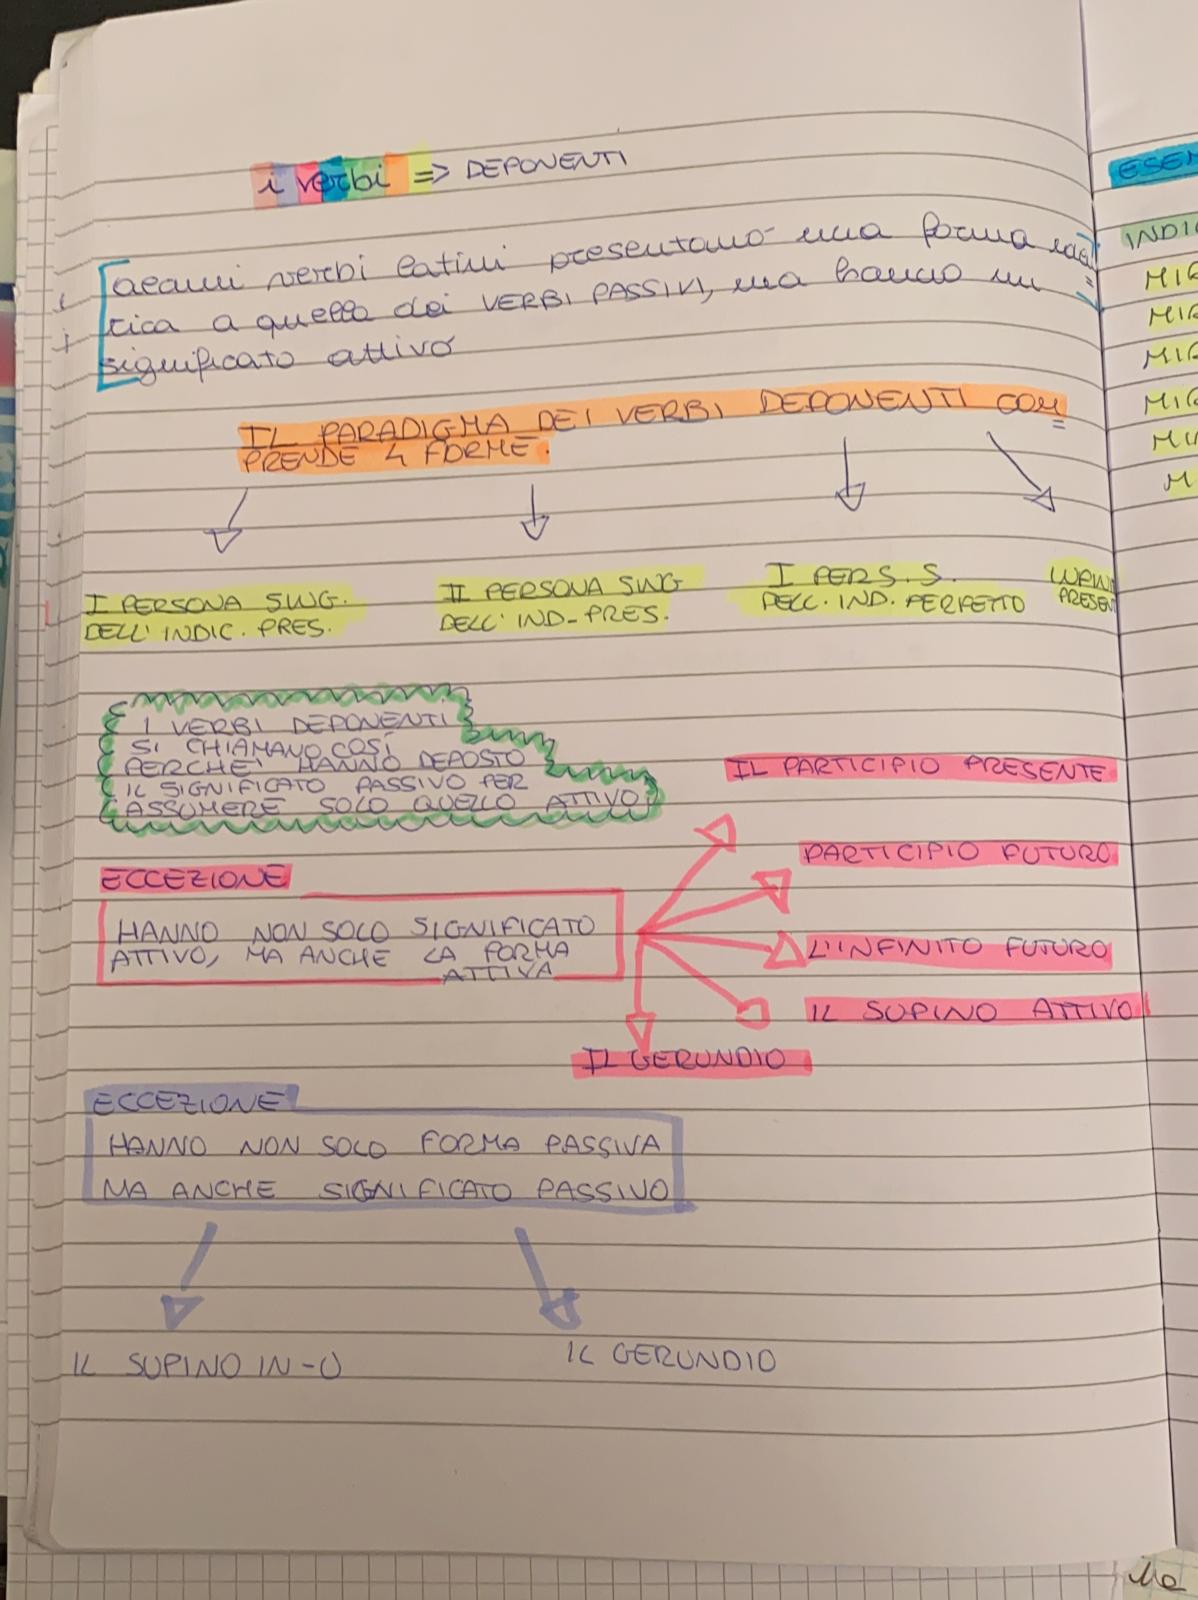 i verbi => DEPONENTI
alcuni verbi latini presentano una forma iden
tica a quella dei VERBI PASSIVI, ma hanno un
significato attivo
IL PARADIGMA DEI VERBI DEPONENTI COM
PRENDE 4 FORME.
I PERSONA SING.
DELL'INDIC. PRES.
II PERSONA SING
DELL'IND-PRES.
I PERS. S.
DELL. IND. PERFETTO
PRESEN
I VERBI DEPONENTI
SI CHIAMANO COSÌ
PERCHE' HANNO DEPOSTO
IL SIGNIFICATO PASSIVO PER
ASSUMERE SOLO QUELLO ATTIVO
IL PARTICIPIO PRESENTE
PARTICIPIO FUTURO
L'INFINITO FUTURO
IL SUPINO ATTIVO
IL GERUNDIO
ECCEZIONE
HANNO NON SOLO SIGNIFICATO
ATTIVO, MA ANCHE LA FORMA
ATTIVA
ECCEZIONE
HANNO NON SOLO FORMA PASSIVA
MA ANCHE SIGNIFICATO PASSIVO
IL SUPINO IN-U
IL GERUNDIO
ESEM
INDIC
MIR
MIR
MIR
MIR
MIR
M